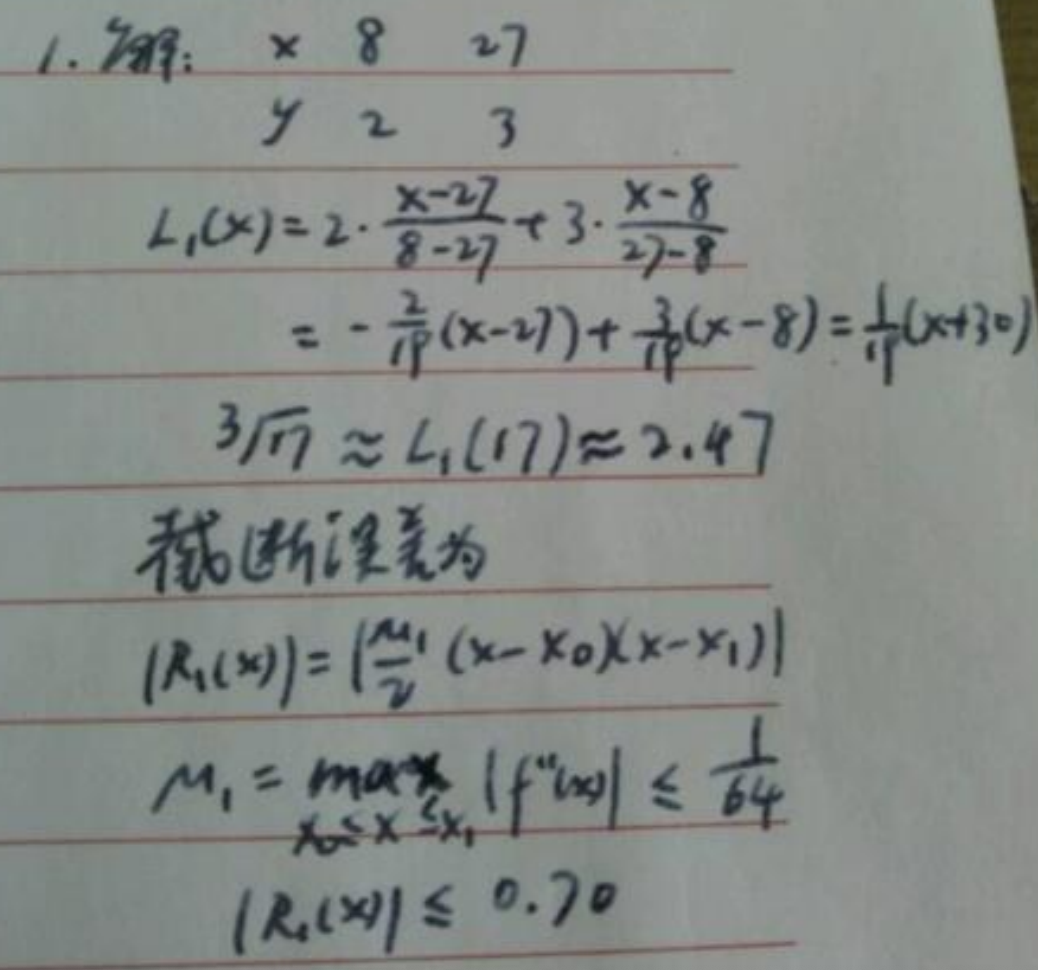 1. 解: x 8 27
y 2 3
L₁(x)=2·\frac{x-27}{8-27}+3·\frac{x-8}{27-8}
=-\frac{2}{19}(x-27)+\frac{3}{19}(x-8)=\frac{1}{19}(x+30)
³√17≈L₁(17)≈2.47
截断误差为
|R₁(x)|=|\frac{M₁}{2}(x-x₀)(x-x₁)|
M₁=max_{x₀≤x≤x₁}|f''(x)|≤\frac{1}{64}
|R₁(x)|≤0.70